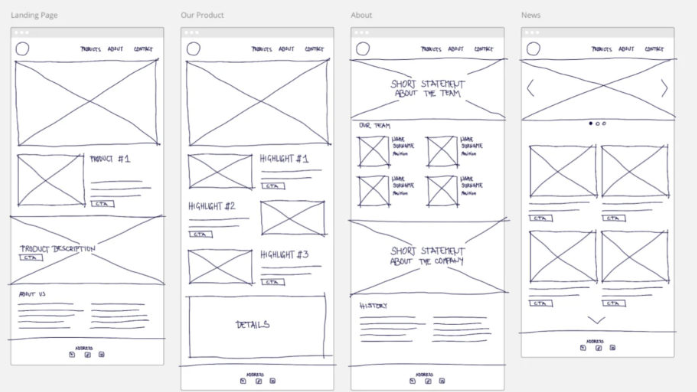 Landing Page
PRODUCTS ABOUT CONTACT
PRODUCT #1
CTA
PRODUCT DESCRIPTION
CTA
ABOUT US
ADDRESS
Our Product
PRODUCTS ABOUT CONTACT
HIGHLIGHT #1
CTA
HIGHLIGHT #2
CTA
HIGHLIGHT #3
CTA
DETAILS
ADDRESS
About
PRODUCTS ABOUT CONTACT
SHORT STATEMENT
ABOUT THE TEAM
OUR TEAM
NAME
SURNAME
POSITION
NAME
SURNAME
POSITION
NAME
SURNAME
POSITION
NAME
SURNAME
POSITION
SHORT STATEMENT
ABOUT THE COMPANY
HISTORY
ADDRESS
News
PRODUCTS ABOUT CONTACT
CTA
CTA
CTA
CTA
ADDRESS